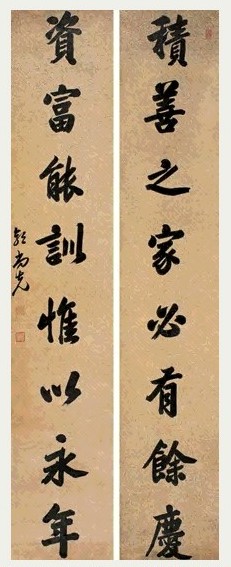 積善之家必有餘慶
資富能訓惟以永年
郭尚先